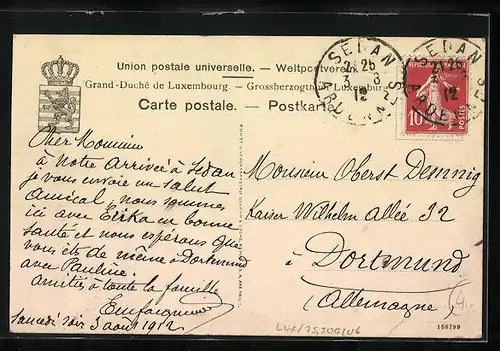 Union postale universelle. — Weltpostverein.
Grand-Duché de Luxembourg. — Grossherzogthum Luxemburg.
Carte postale. — Postkarte.
SEDAN
21 25
3 8
12
ARDENNES
SEDAN
21 25
12
10
POSTES
Cher Monsieur
à notre arrivée à Sedan
je vous envoie un salut
Amical, nous sommes
ici avec Erika en bonne
santé et nous espérons que
vous êtes de même à Dortmund
avec Pauline.
amitiés à toute la famille
Samedi soir 3 aout 1912
Monsieur Oberst Demnig
Kaiser Wilhelm allée 32
à Dortmund
(Allemagne)
158799